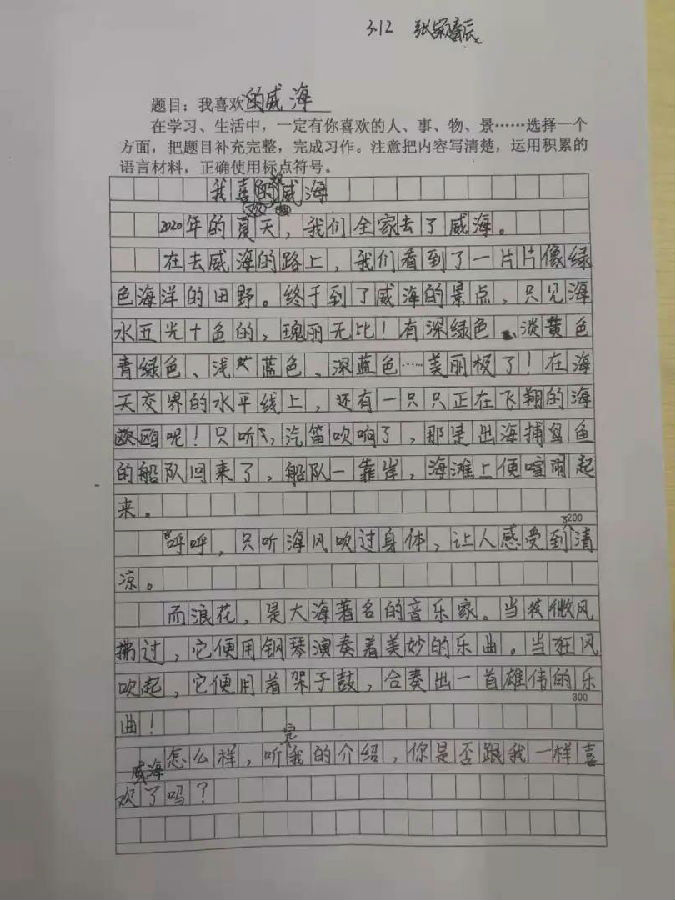 3.12 张
题目：我喜欢的威海
在学习、生活中，一定有你喜欢的人、事、物、景……选择一个
方面，把题目补充完整，完成习作。注意把内容写清楚，运用积累的
语言材料，正确使用标点符号。
我喜欢的威海
2020年的夏天，我们全家去了威海。
在去威海的路上，我们看到了一片片像绿
色海洋的田野。终于到了威海的景点，只见海
水五光十色的，瑰丽无比！有深绿色、淡黄色
青绿色、浅蓝色、深蓝色……美丽极了！在海
天交界的水平线上，还有一只只正在飞翔的海
鸥呢！只听，汽笛吹响了，那是出海捕鱼
的船队回来了，船队一靠岸，海滩上便喧闹起
来。
200
呼呼，只听海风吹过身体，让人感受到清
凉。
而浪花，是大海著名的音乐家。当微风
拂过，它便用钢琴演奏着美妙的乐曲。当狂风
吹起，它便用着架子鼓，合奏出一首雄伟的乐
300
曲！
怎么样，听完我的介绍，你是否跟我一样喜
欢威海了吗？